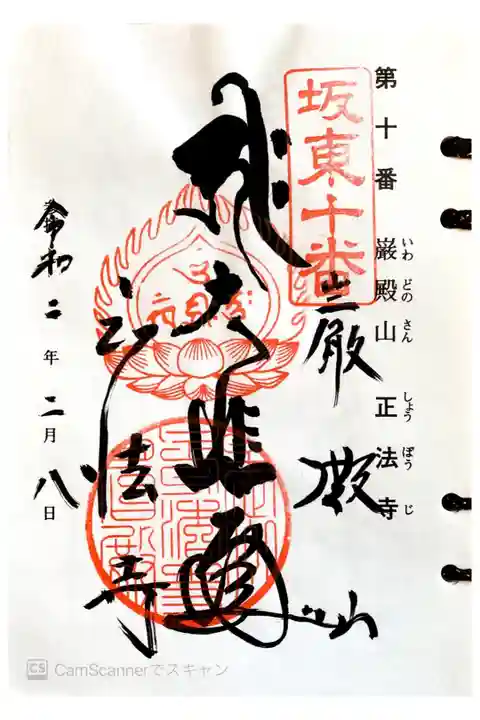 第十番 巌殿山 正法寺
いわ どの さん しょう ぼう じ
坂東十番
巌殿山
大悲閣
正法寺
令和二年二月八日
CS CamScannerでスキャン